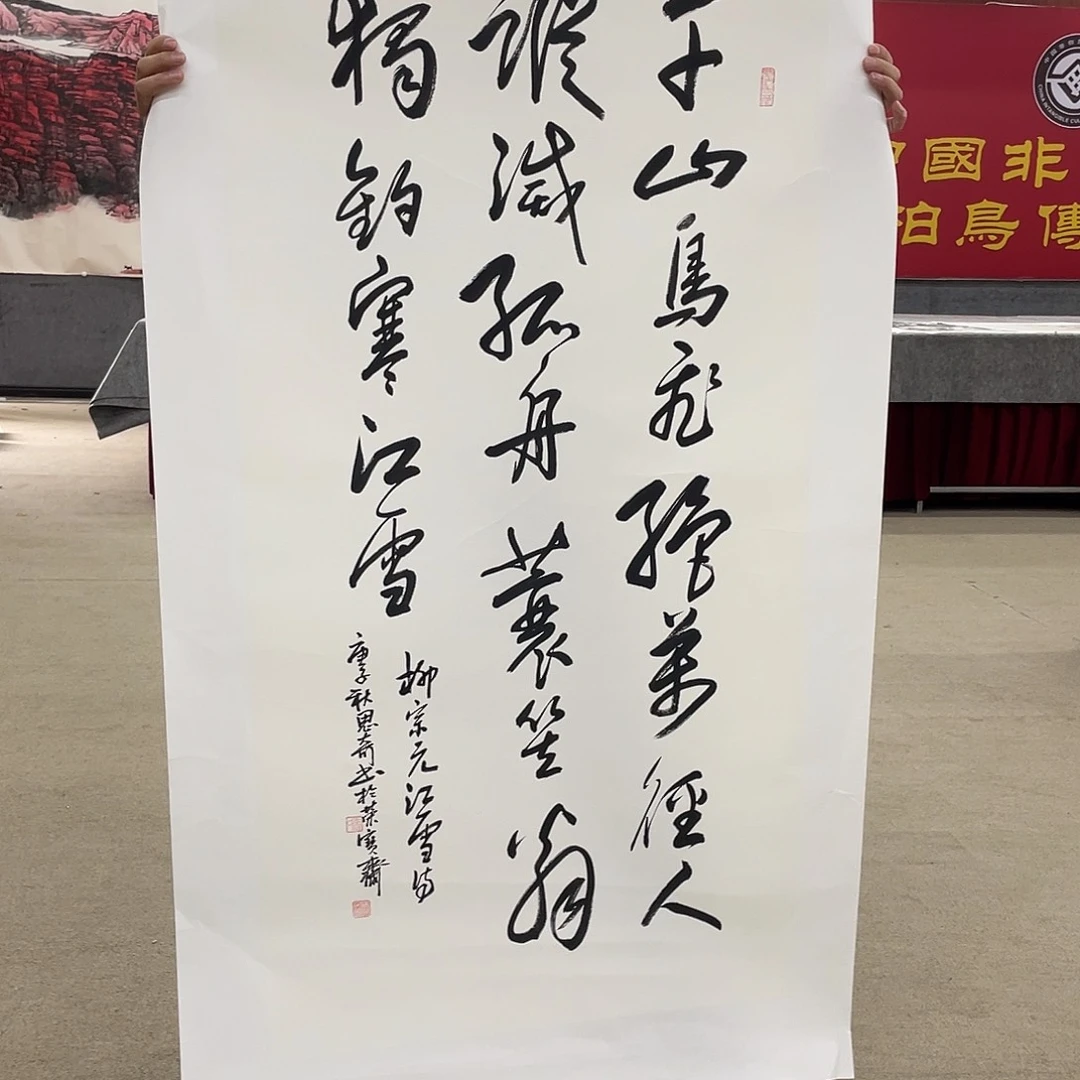 千山鳥飛絕萬徑人
蹤滅孤舟蓑笠翁
獨釣寒江雪
柳宗元江雪詩
庚子秋思奇书於榮寶齋
國非
柏鳥傳
CHINA INTANGIBLE